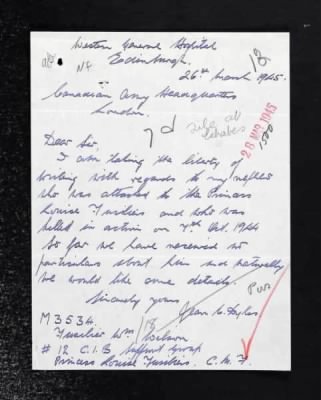 Western General Hospital
Edinburgh.
26th March 1945.
Canadian Army Headquarters
London.
28 MAR 1945
Dear Sir,
I am taking the liberty of
writing with regards to my nephew
who was attached to the Princess
Louise Fusiliers and who was
killed in action on 7th Oct. 1944
So far we have received no
particulars about him and naturally
we would like some details.
Sincerely yours
Jean C.
M3534
Fusilier Wm
# 12 C.I.B Support Group
Princess Louise Fusiliers. C.M.F.